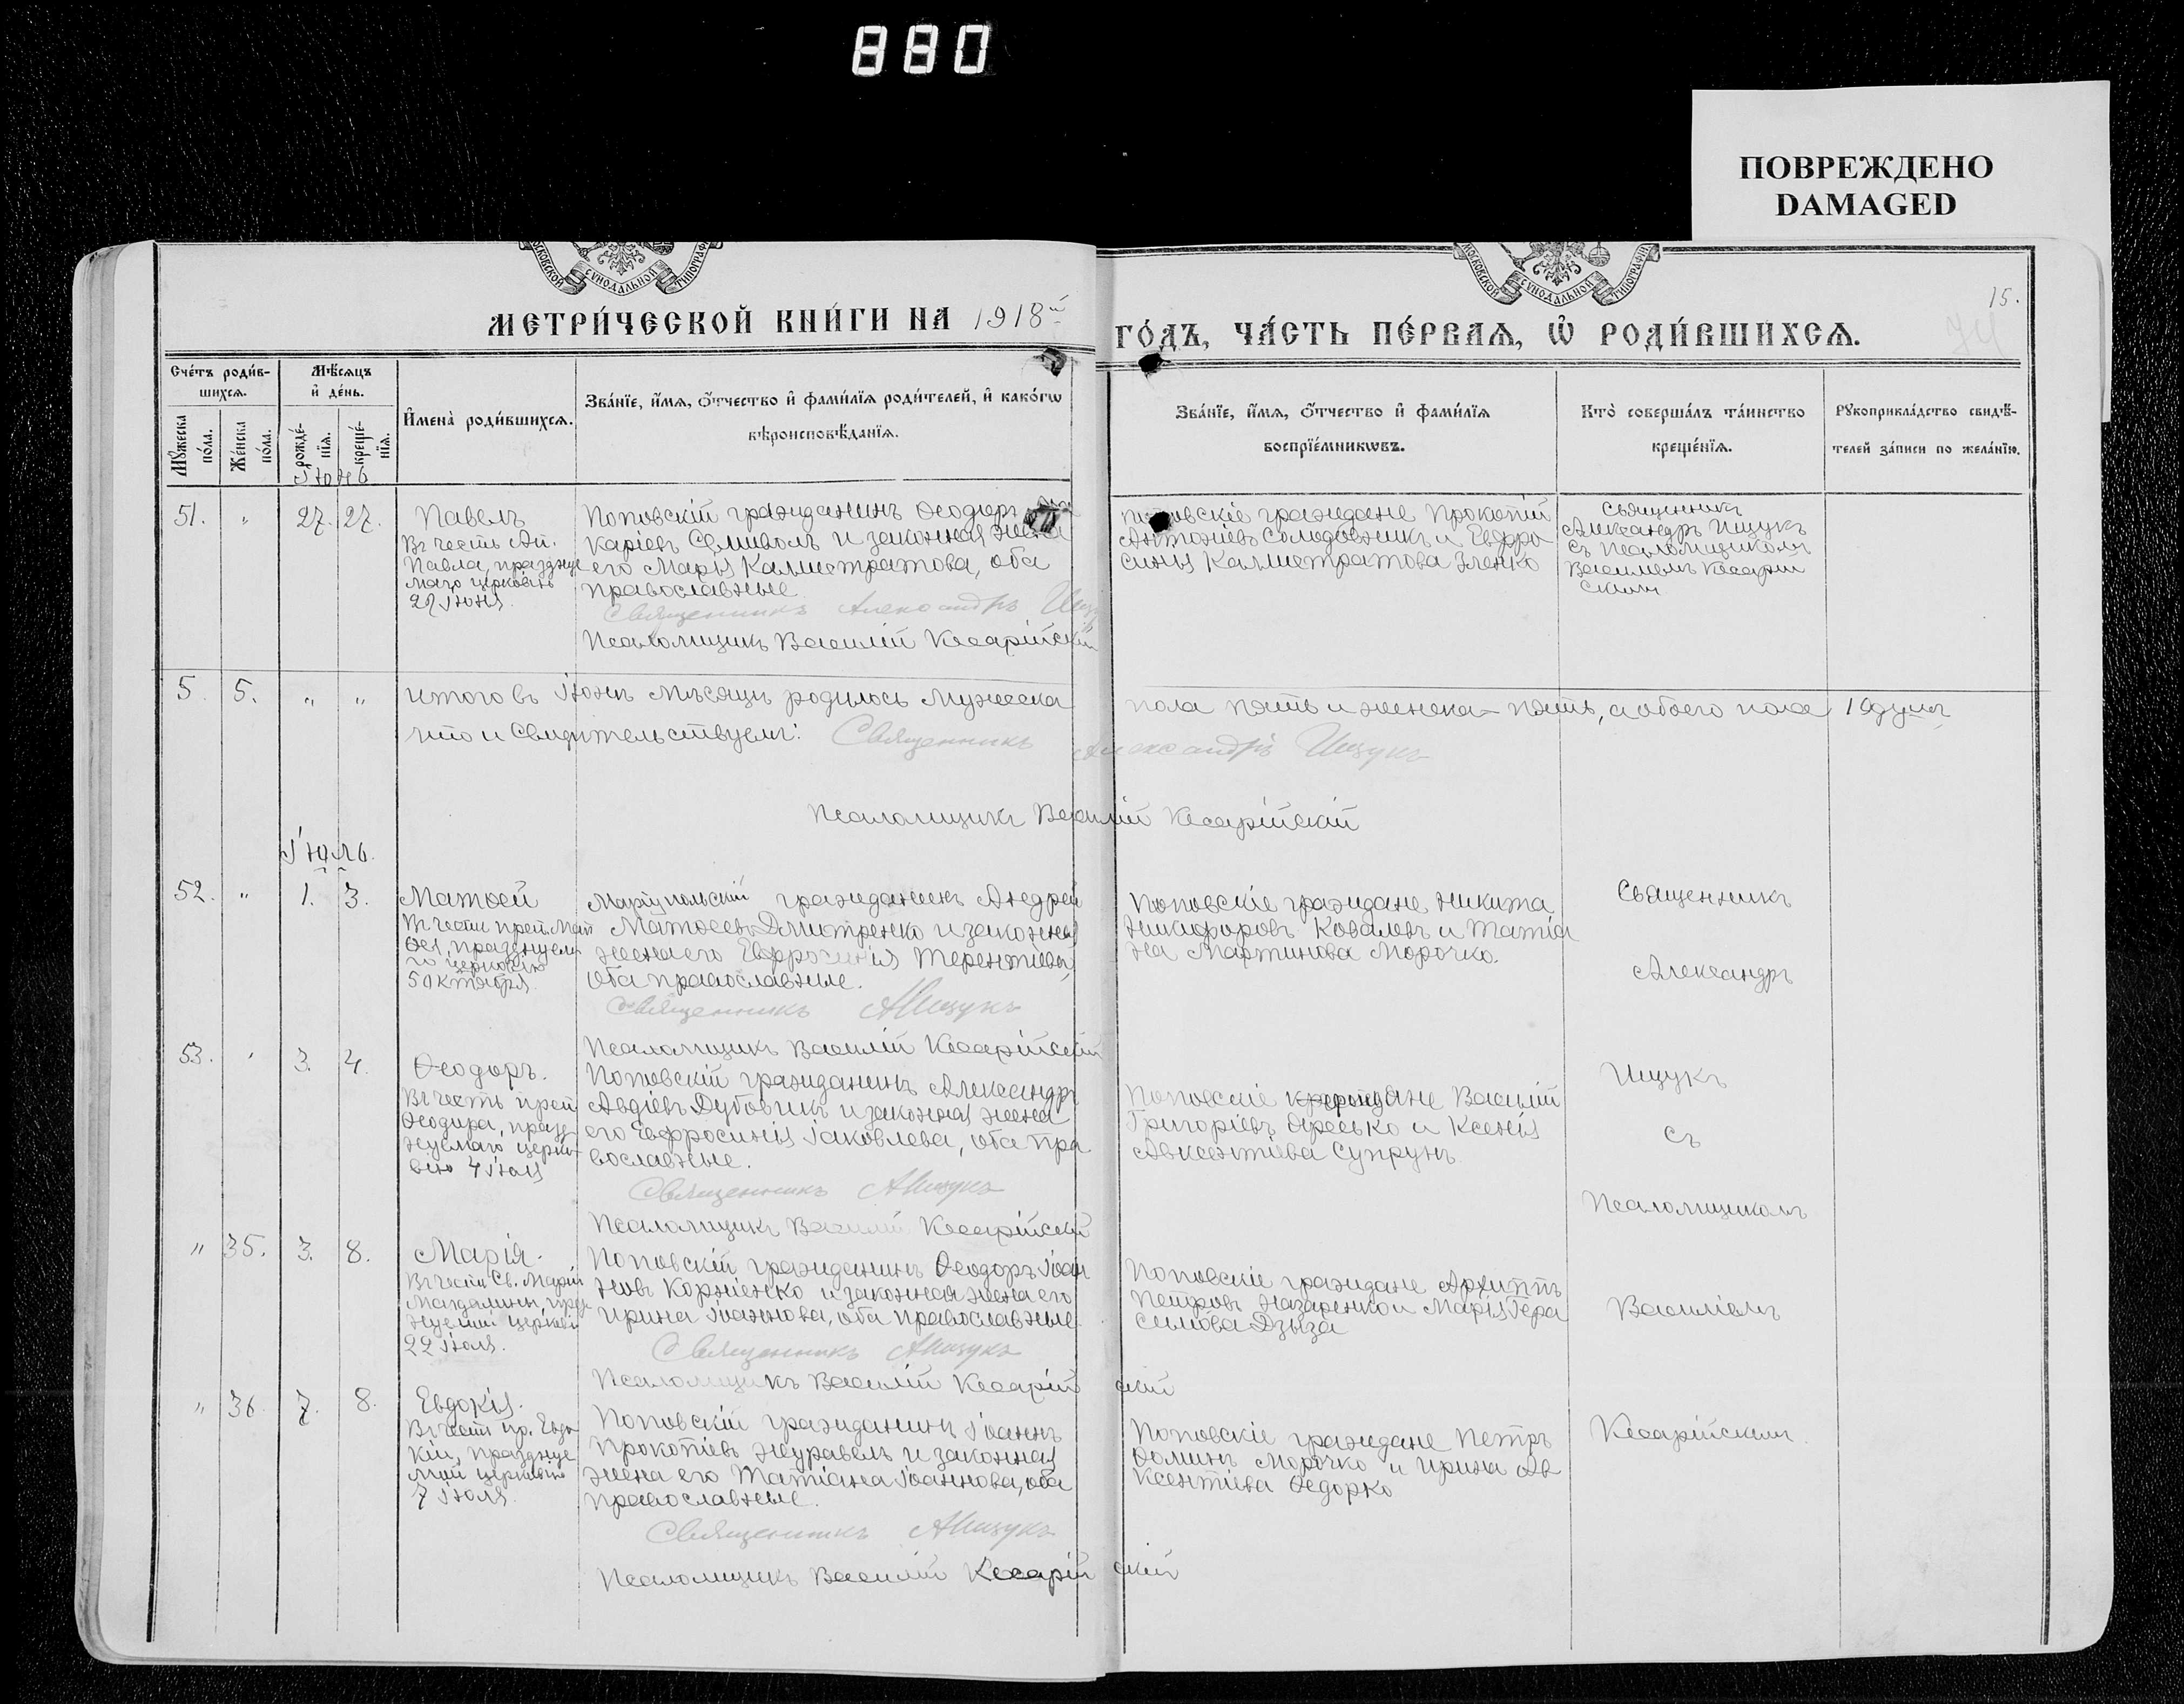 880
ПОВРЕЖДЕНО
DAMAGED
МОСКОВСКОЙ СУНОДАЛЬНОЙ ТИПОГРАФІИ
МОСКОВСКОЙ СУНОДАЛЬНОЙ ТИПОГРАФІИ
15.
МЕТРИ́ЧЕСКОЙ КНИ́ГИ НА 1918й
ГО́ДЪ, ЧА́СТЬ ПЕ́РВАЯ, Ѡ҆ РОДИ́ВШИХСЯ.
Сче́тъ роди́в-
шихся.
Мѣ́сяцъ
и҆ де́нь.
Му́жеска
по́ла.
Же́нска
по́ла.
рожде́-
нїя.
креще́-
нїя.
И҆мена̀ роди́вшихся.
Зва́нїе, и҆́мя, ѻ҆́тчество и҆ фами́лїя роди́телей, и҆ како́гѡ
вѣроисповѣ́данїя.
Зва́нїе, и҆́мя, ѻ҆́тчество и҆ фами́лїя
воспрїе́мникѡвъ.
Кто̀ соверша́лъ та́инство
креще́нїя.
Рукоприкла́дство свидѣ́-
телей за́писи по жела́нїю.
Іюнь
51. " 27. 27.
Павелъ
Въ честь Ап.
Павла, праздуе
маго церковію
29 Іюня.
Поповскій гражданинъ Ѳеодоръ
каріевъ Семиволъ и законная жена
его Марія Каллистратова, оба
православные
Священникъ Александръ Ищу
Псаломщикъ Василій Кесарійскій
Поповскіе граждане Прокопій
Антоніевъ Солодовникъ и Евфро
синія Каллистратова Зленко
Священникъ
Александръ Ищукъ
съ Псаломщикомъ
Василіемъ Кесарій
скимъ
5. 5. " "
итого въ Іюнѣ мѣсяцѣ родилось Мужеска
пола пять и женска – пять, а обоего пола 10 душъ
что и Свидѣтельствуемъ: Священникъ Александръ Ищукъ
Псаломщикъ Василій Кесарійскій
Іюль.
52. " 1. 3.
Матѳей
Въ честь преп. Мат
ѳея, празднуема
го церковію
5 Октября.
Маріупольскій гражданинъ Андрей
Матѳеевъ Дмитренко и законная
жена его Евфросинія Терентіева,
оба православные.
Священникъ АИщукъ
Псаломщикъ Василій Кесарійскій
Поповскіе граждане Никита
Никифоровъ Ковалевъ и Татіа
на Мартинова Морочко.
Священникъ
Александръ
Ищукъ
съ
Псаломщикомъ
Василіемъ
Кесарійскимъ
53. " 3. 4.
Ѳеодоръ.
Въ честь преп
Ѳеодора, празд-
нуемаго церко-
вію 4 Іюля
Поповскій гражданинъ Александръ
Авдіевъ Дубовикъ и законная жена
его Евфросинія Іаковлева, оба пра
вославные.
Священникъ АИщукъ
Псаломщикъ Василій Кесарійскій
Поповскіе граждане Василій
Григоріевъ Яресько и Ксенія
Авксентіева Супрунъ
" 35. 3. 8.
Марія.
Въ честь Св. Маріи
Магдалины, праз
нуемой церковію
22 Іюля.
Поповскій гражданинъ Ѳеодоръ Іоан
новъ Корніенко и законная жена его
Ирина Іоаннова, оба православные
Священникъ АИщукъ
Псаломщикъ Василій Кесарійскій
Поповскіе граждане Архиппъ
Петровъ Назаренко и Марія Гера
симова Дзыза
" 36 7. 8.
Евдокія.
Въ честь пр. Евдо
кіи, празднуе
мой церковію
7 Іюля.
Поповскій гражданинъ Іоаннъ
Прокопіевъ Журавель и законная
жена его Татіана Іоаннова, оба
православные.
Священникъ АИщукъ
Псаломщикъ Василій Кесарійскій
Поповскіе граждане Петръ
Ѳоминъ Морочко и Ирина Ав
ксентіева Ѳедорко